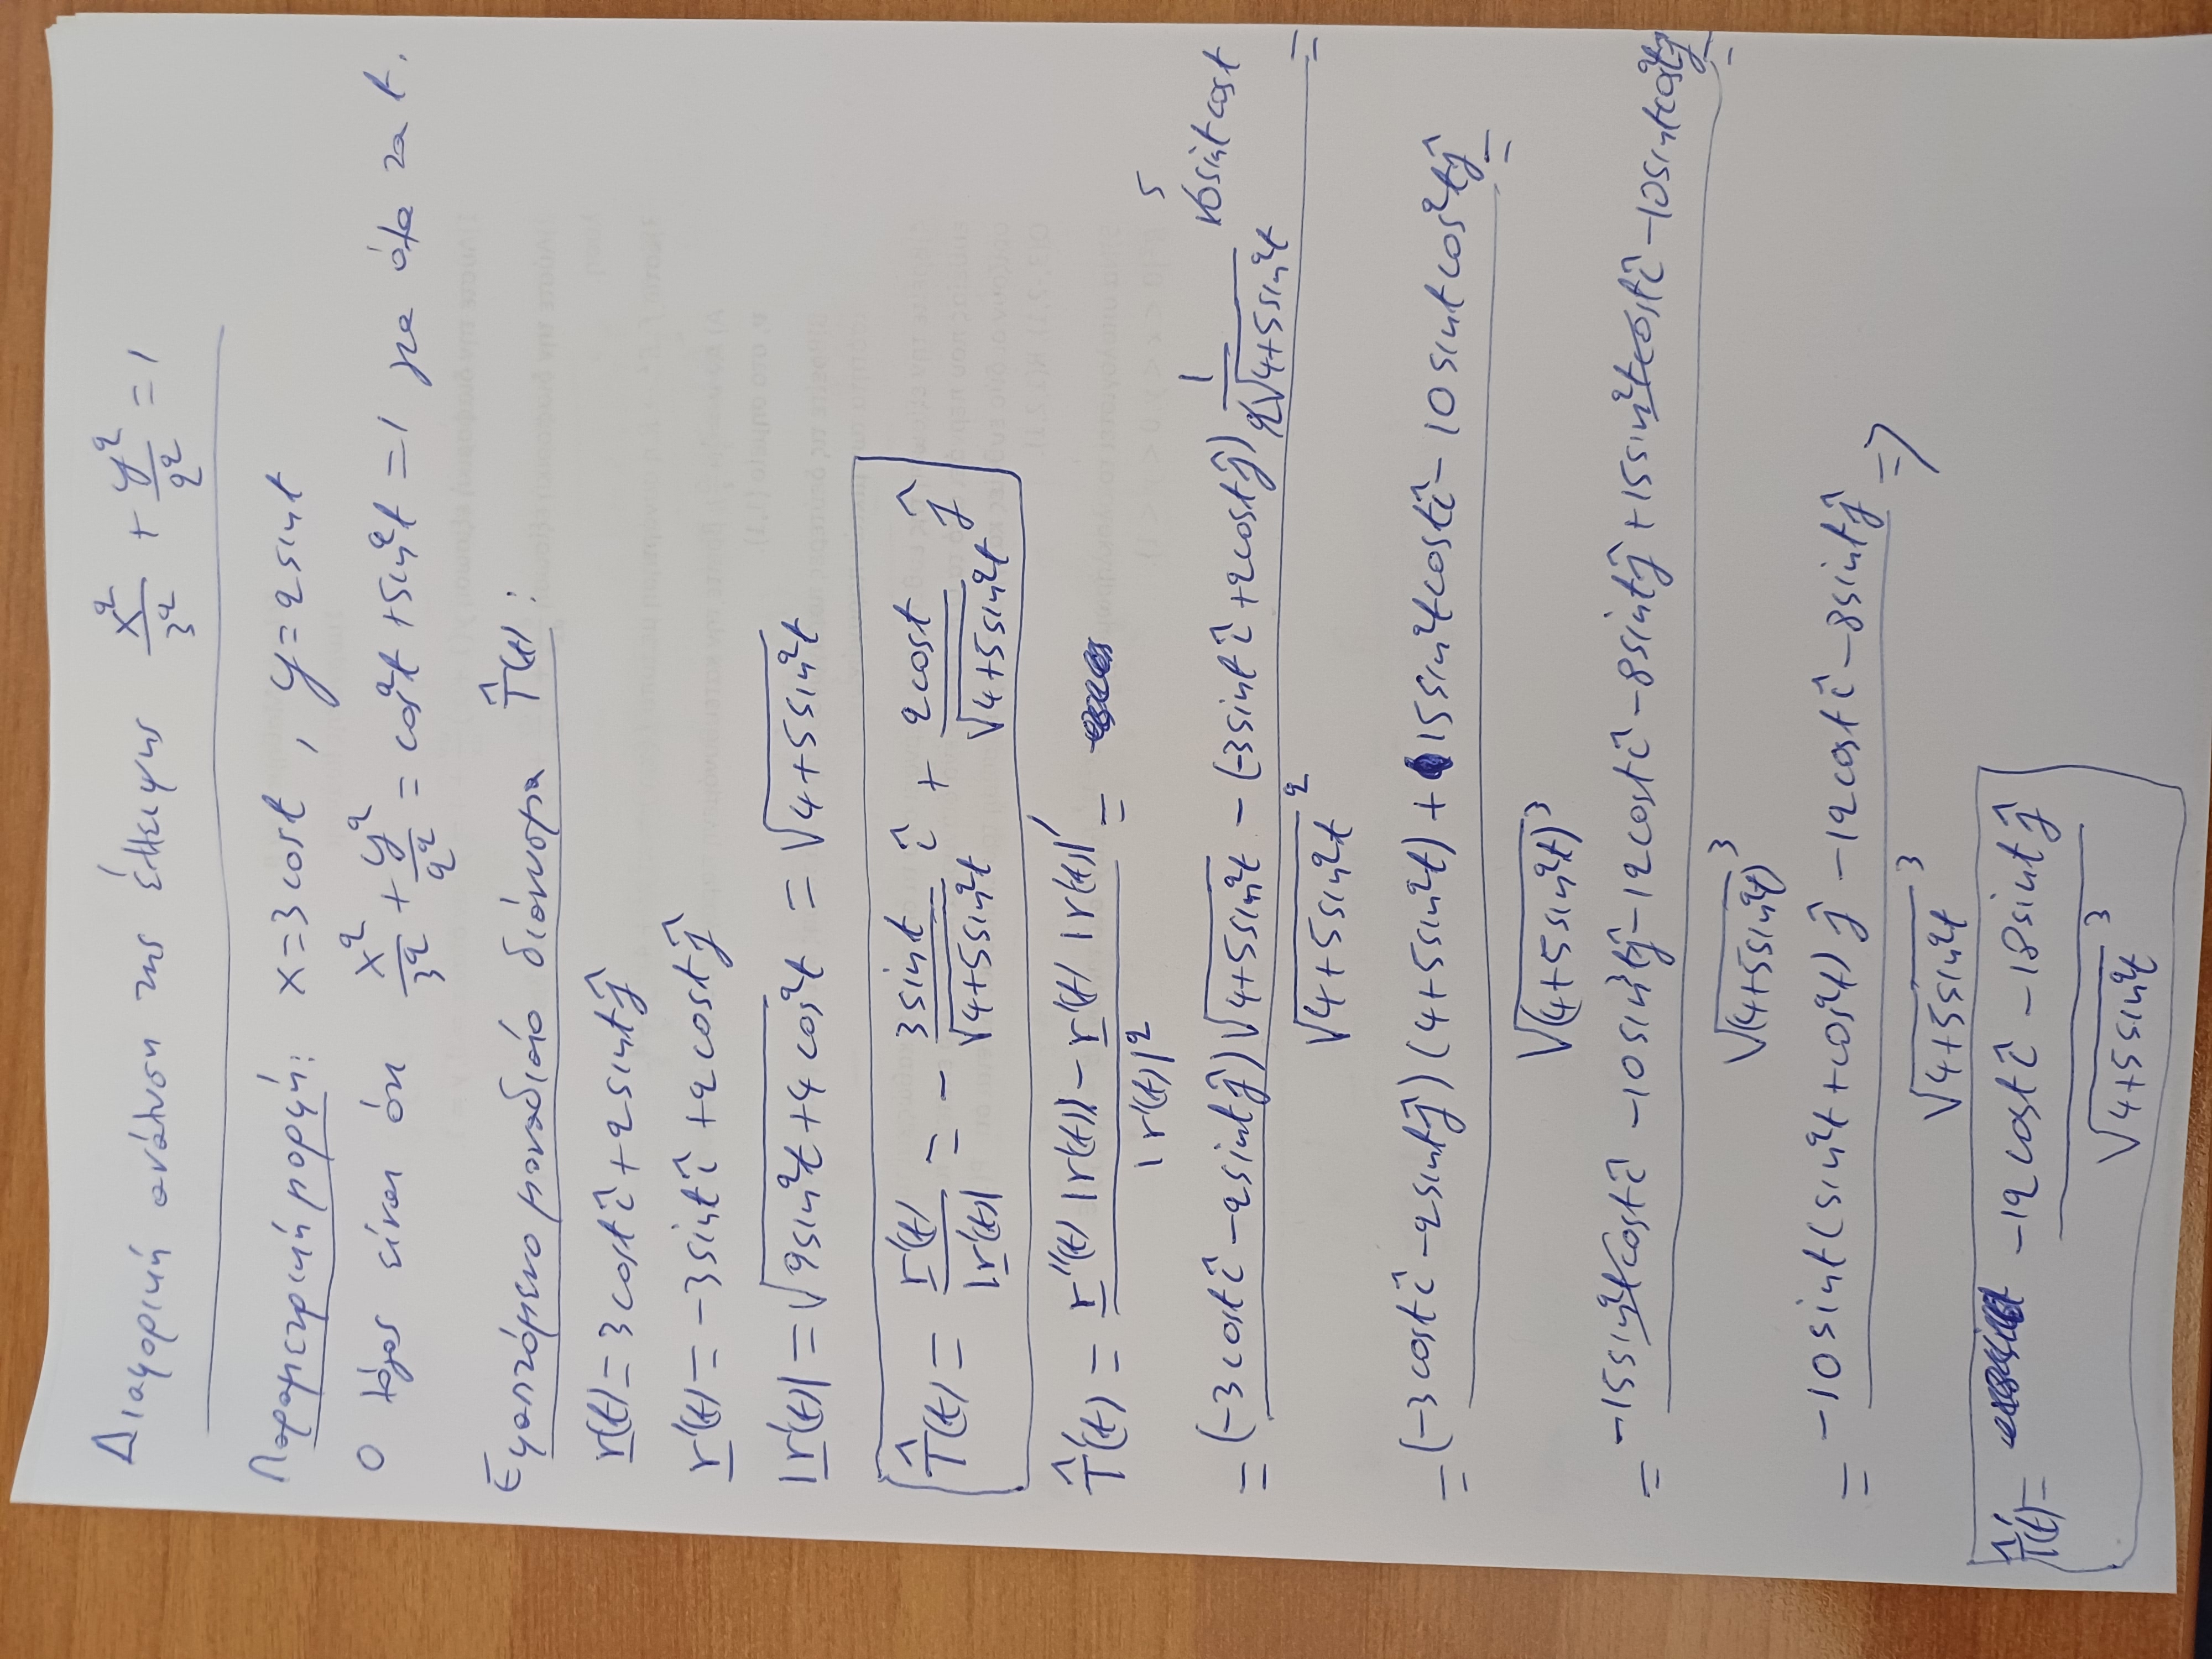 Διαφορική ανάλυση της έλλειψης x²/3² + y²/2² = 1
Παραμετρική μορφή: x = 3cost, y = 2sint
Ο λόγος είναι ότι x²/3² + y²/2² = cos²t + sin²t = 1 για όλα τα t.
Εφαπτόμενο μοναδιαίο διάνυσμα T̂(t):
r(t) = 3cost î + 2sint ĵ
r'(t) = -3sint î + 2cost ĵ
|r'(t)| = √(9sin²t + 4cos²t) = √(4+5sin²t)
T̂(t) = r'(t)/|r'(t)| = - 3sint/√(4+5sin²t) î + 2cost/√(4+5sin²t) ĵ
T̂'(t) = (r''(t) |r'(t)| - r'(t) |r'(t)|')/|r'(t)|² =
= ((-3cost î - 2sint ĵ)√(4+5sin²t) - (-3sint î + 2cost ĵ) 1/(2√(4+5sin²t)) 10 5 sint cost)/√(4+5sin²t)² =
= ((-3cost î - 2sint ĵ)(4+5sin²t) + 15sin²t cost î - 10sint cos²t ĵ)/√(4+5sin²t)³ =
= (-15sin²t cost î - 10sin³t ĵ - 12cost î - 8sint ĵ + 15sin²t cost î - 10sint cos²t ĵ)/√(4+5sin²t)³ =
= (-10sint(sin²t + cos²t) ĵ - 12cost î - 8sint ĵ)/√(4+5sin²t)³ ⇒
T̂'(t) = (-12cost î - 18sint ĵ)/√(4+5sin²t)³